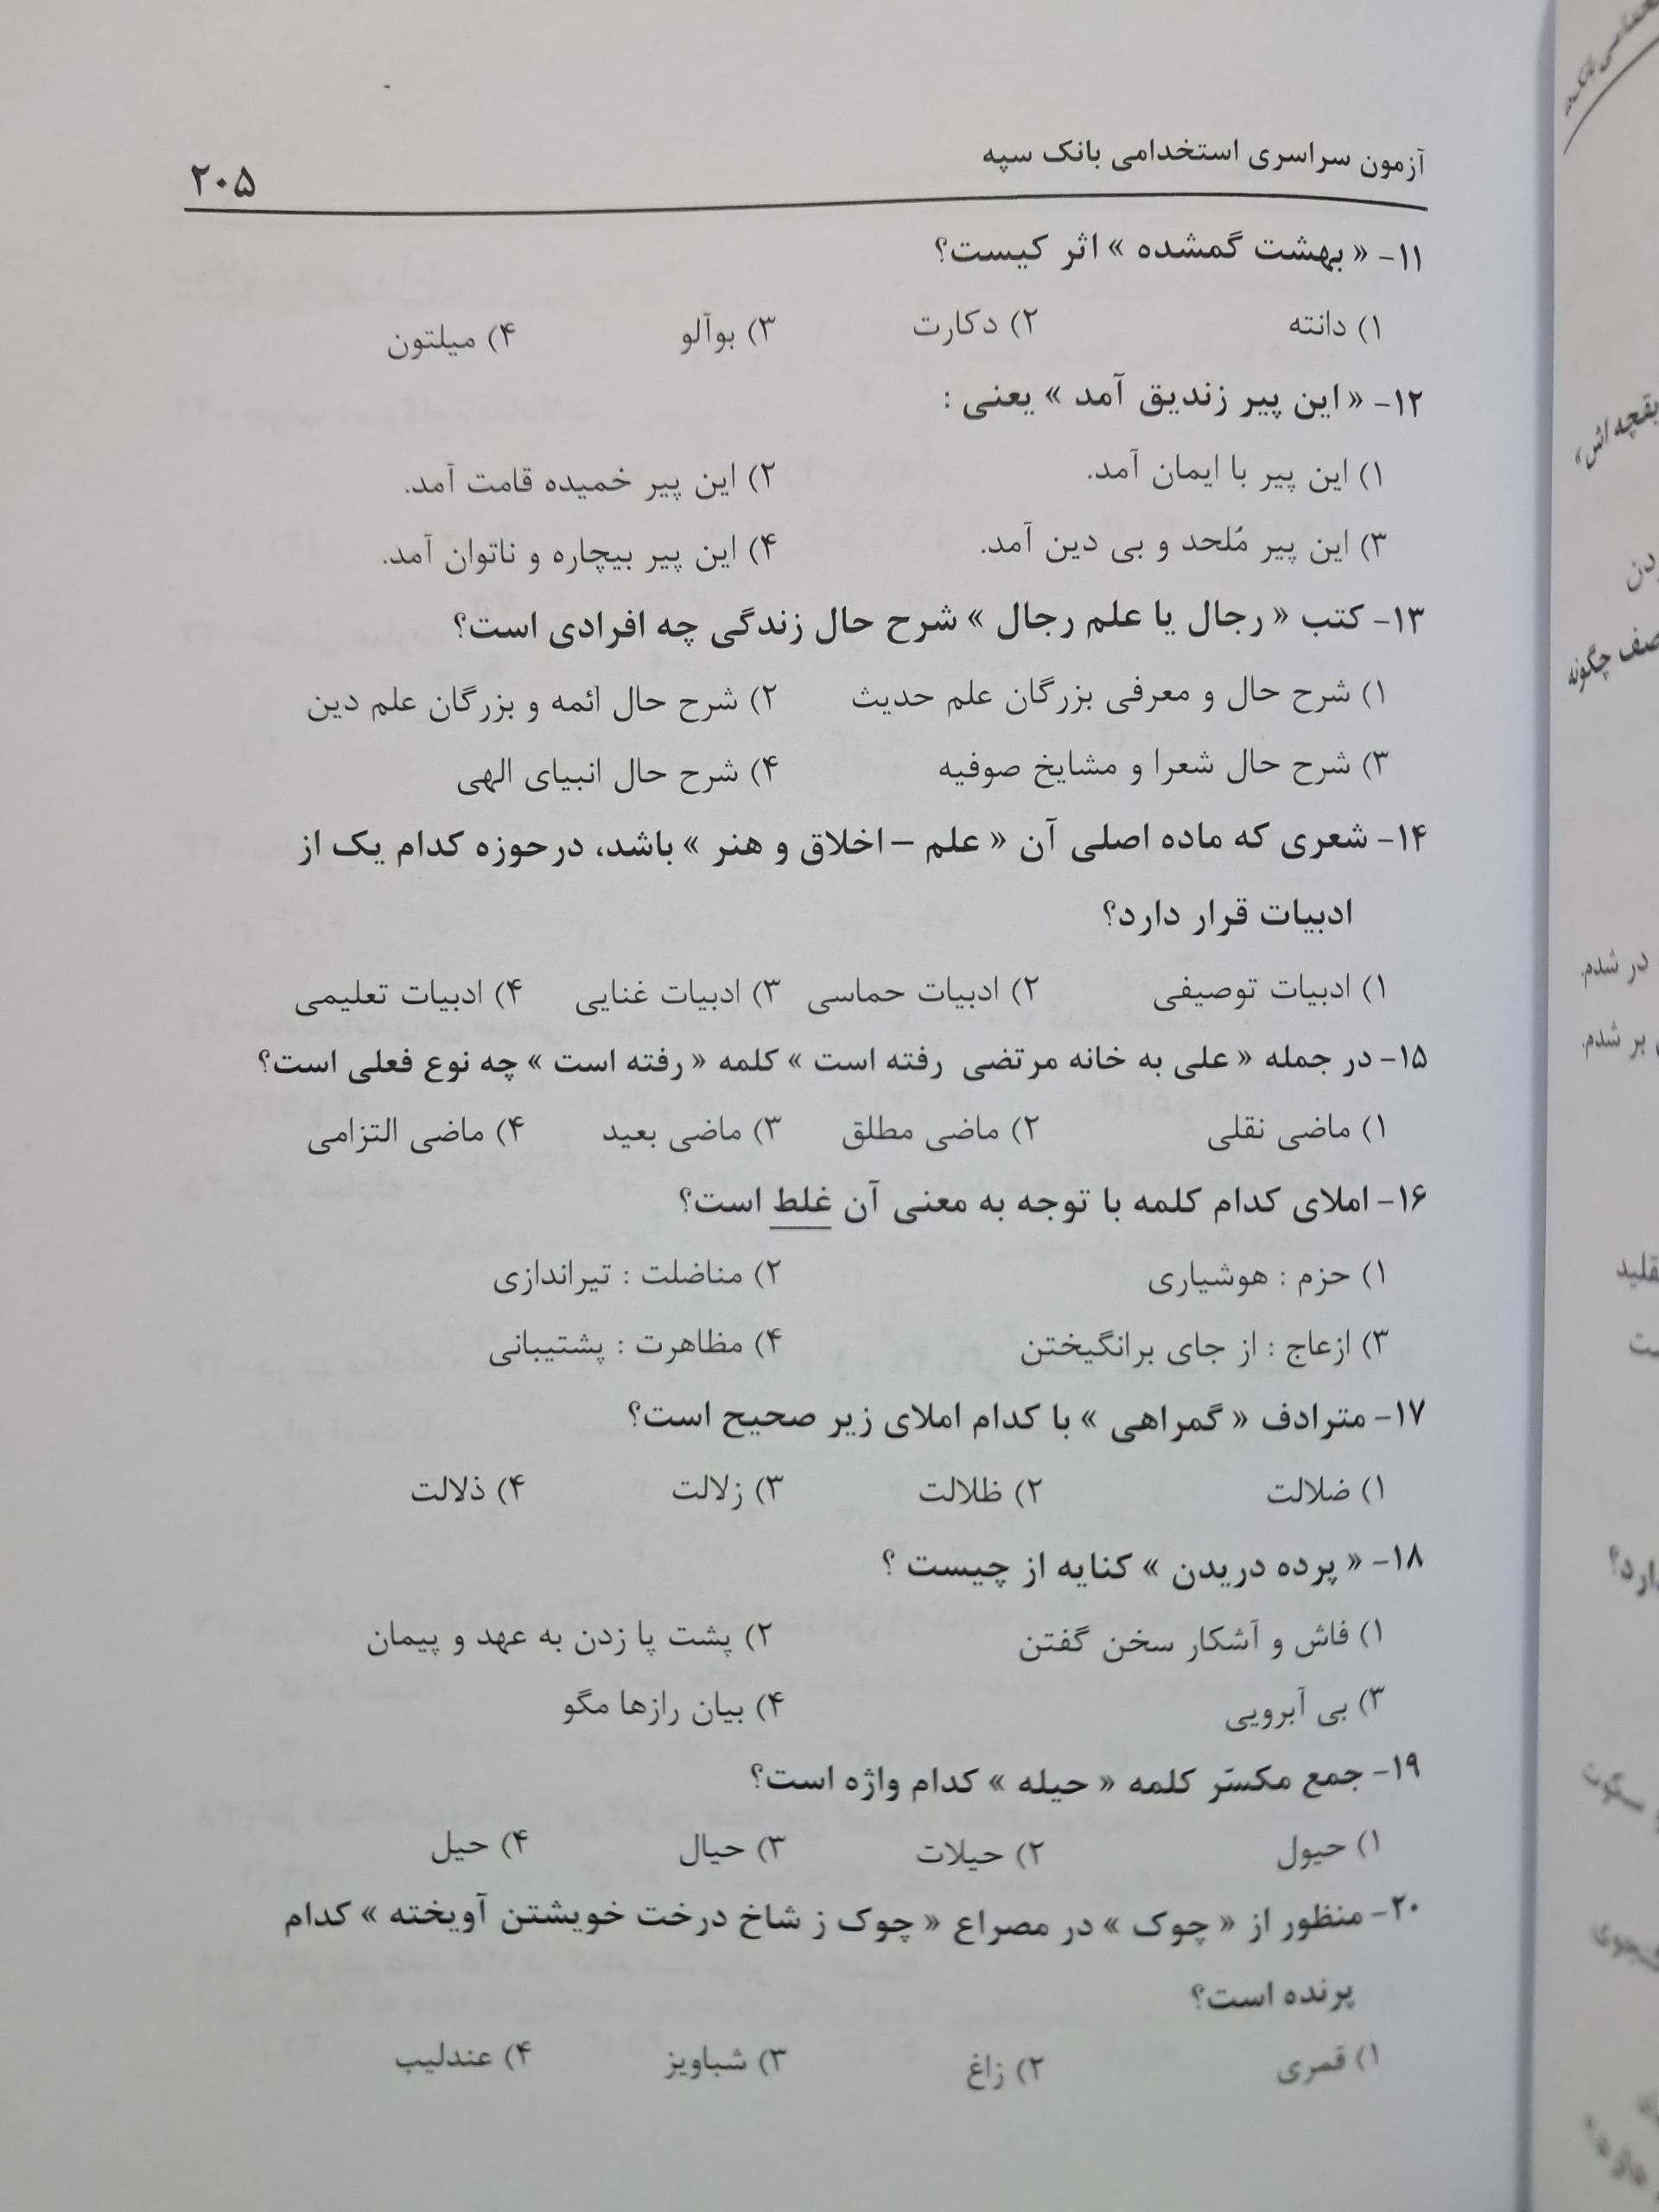 آزمون سراسری استخدامی بانک سپه
۲۰۵
۱۱- « بهشت گمشده » اثر کیست؟
۱) دانته ۲) دکارت ۳) بوآلو ۴) میلتون
۱۲- « این پیر زندیق آمد » یعنی :
۱) این پیر با ایمان آمد. ۲) این پیر خمیده قامت آمد.
۳) این پیر مُلحد و بی دین آمد. ۴) این پیر بیچاره و ناتوان آمد.
۱۳- کتب « رجال یا علم رجال » شرح حال زندگی چه افرادی است؟
۱) شرح حال و معرفی بزرگان علم حدیث ۲) شرح حال ائمه و بزرگان علم دین
۳) شرح حال شعرا و مشایخ صوفیه ۴) شرح حال انبیای الهی
۱۴- شعری که ماده اصلی آن « علم – اخلاق و هنر » باشد، درحوزه کدام یک از
ادبیات قرار دارد؟
۱) ادبیات توصیفی ۲) ادبیات حماسی ۳) ادبیات غنایی ۴) ادبیات تعلیمی
۱۵- در جمله « علی به خانه مرتضی رفته است » کلمه « رفته است » چه نوع فعلی است؟
۱) ماضی نقلی ۲) ماضی مطلق ۳) ماضی بعید ۴) ماضی التزامی
۱۶- املای کدام کلمه با توجه به معنی آن غلط است؟
۱) حزم : هوشیاری ۲) مناضلت : تیراندازی
۳) ازعاج : از جای برانگیختن ۴) مظاهرت : پشتیبانی
۱۷- مترادف « گمراهی » با کدام املای زیر صحیح است؟
۱) ضلالت ۲) ظلالت ۳) زلالت ۴) ذلالت
۱۸- « پرده دریدن » کنایه از چیست ؟
۱) فاش و آشکار سخن گفتن ۲) پشت پا زدن به عهد و پیمان
۳) بی آبرویی ۴) بیان رازها مگو
۱۹- جمع مکسّر کلمه « حیله » کدام واژه است؟
۱) حیول ۲) حیلات ۳) حیال ۴) حیل
۲۰- منظور از « چوک » در مصراع « چوک ز شاخ درخت خویشتن آویخته » کدام
پرنده است؟
۱) قمری ۲) زاغ ۳) شباویز ۴) عندلیب
بقچه اش»
چگونه
در شدم.
بر شدم.